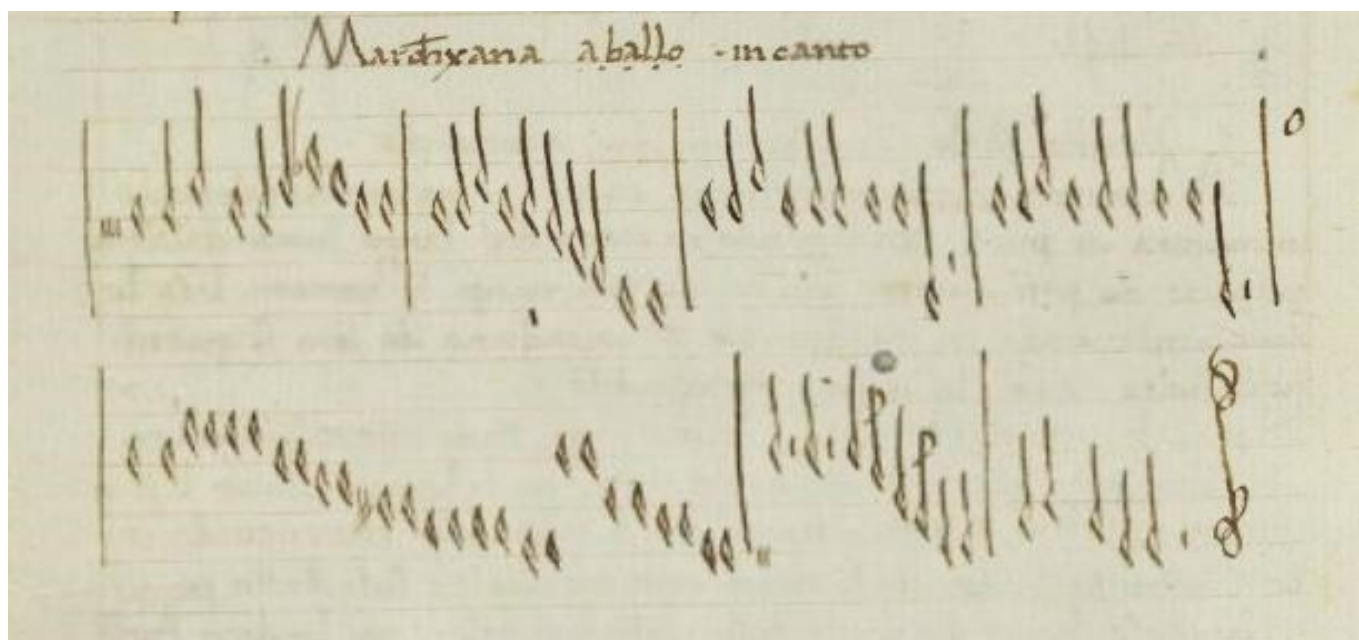 Marchixana a ballo in canto